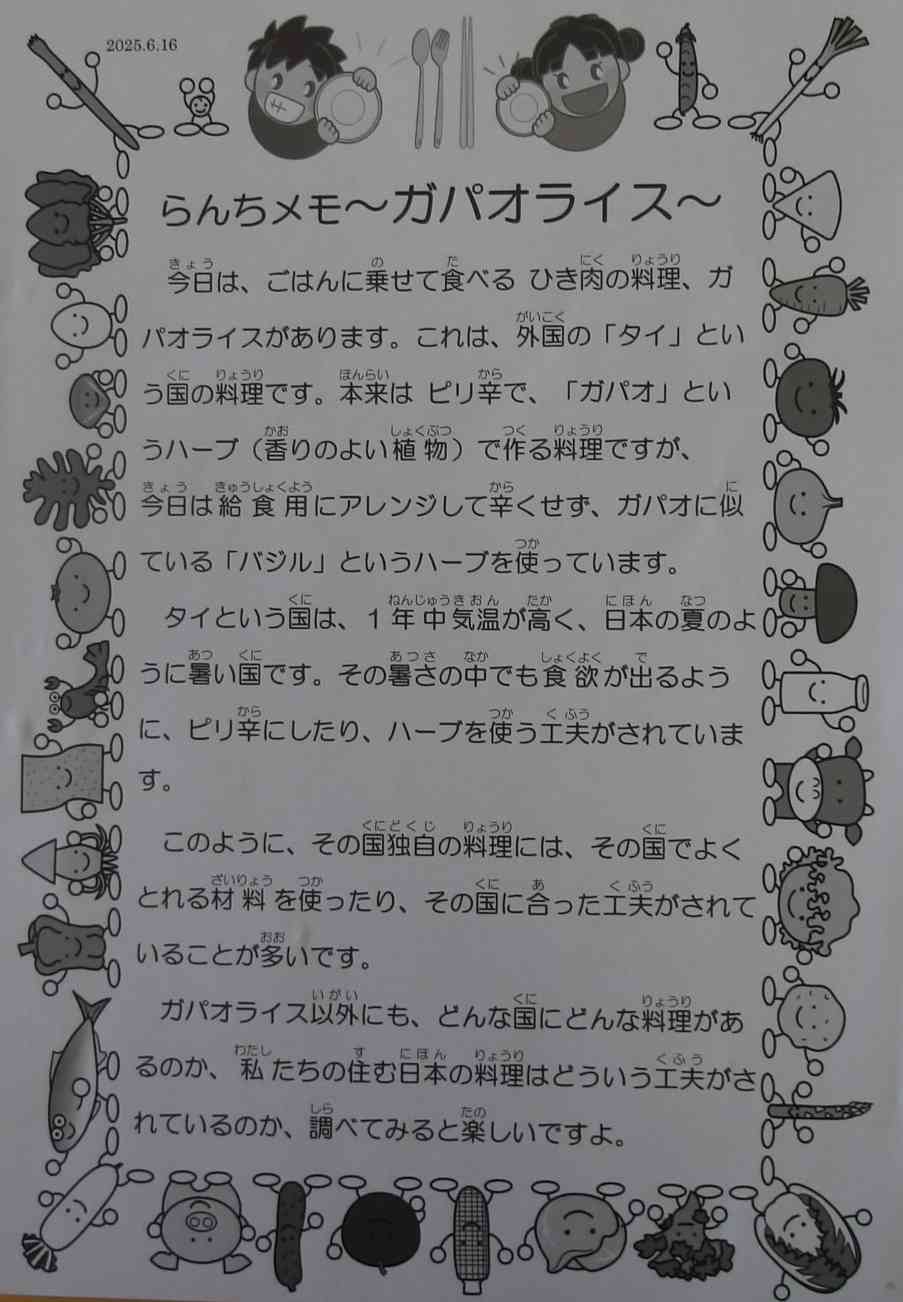 2025.6.16
らんちメモ～ガパオライス～
今日は、ごはんに乗せて食べる ひき肉の料理、ガ
パオライスがあります。これは、外国の「タイ」とい
う国の料理です。本来は ピリ辛で、「ガパオ」とい
うハーブ（香りのよい植物）で作る料理ですが、
今日は給食用にアレンジして辛くせず、ガパオに似
ている「バジル」というハーブを使っています。
タイという国は、１年中気温が高く、日本の夏のよ
うに暑い国です。その暑さの中でも食欲が出るよう
に、ピリ辛にしたり、ハーブを使う工夫がされていま
す。
このように、その国独自の料理には、その国でよく
とれる材料を使ったり、その国に合った工夫がされて
いることが多いです。
ガパオライス以外にも、どんな国にどんな料理があ
るのか、私たちの住む日本の料理はどういう工夫がさ
れているのか、調べてみると楽しいですよ。